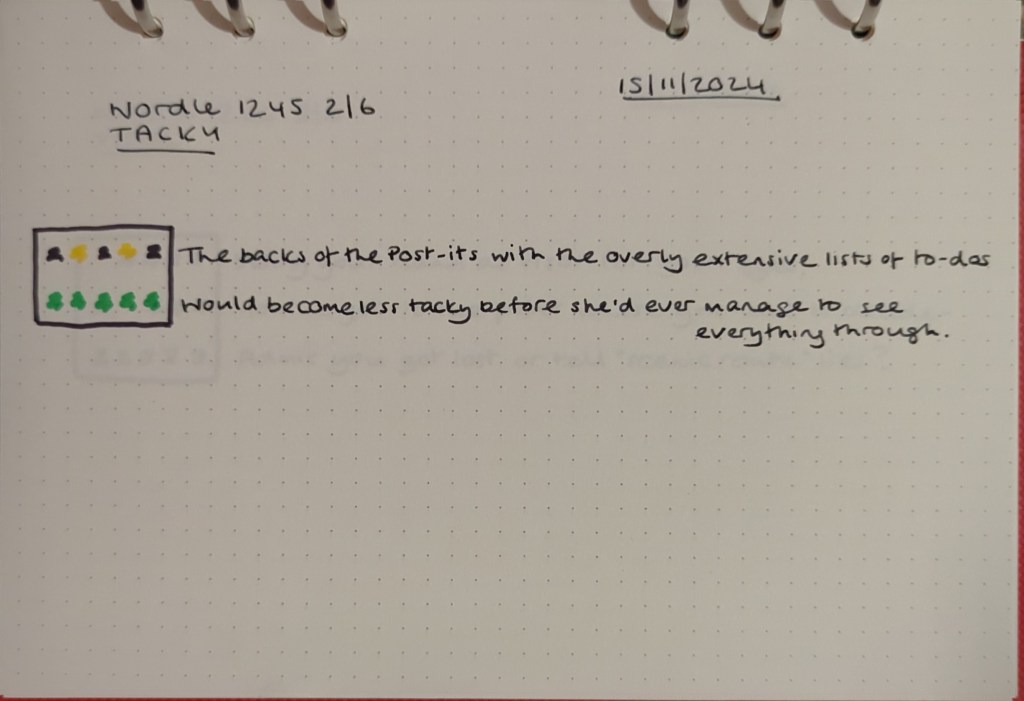 15/11/2024
Wordle 1245 2/6
TACKY
The backs of the Post-its with the overly extensive lists of to-dos
would become less tacky before she'd ever manage to see
everything through.